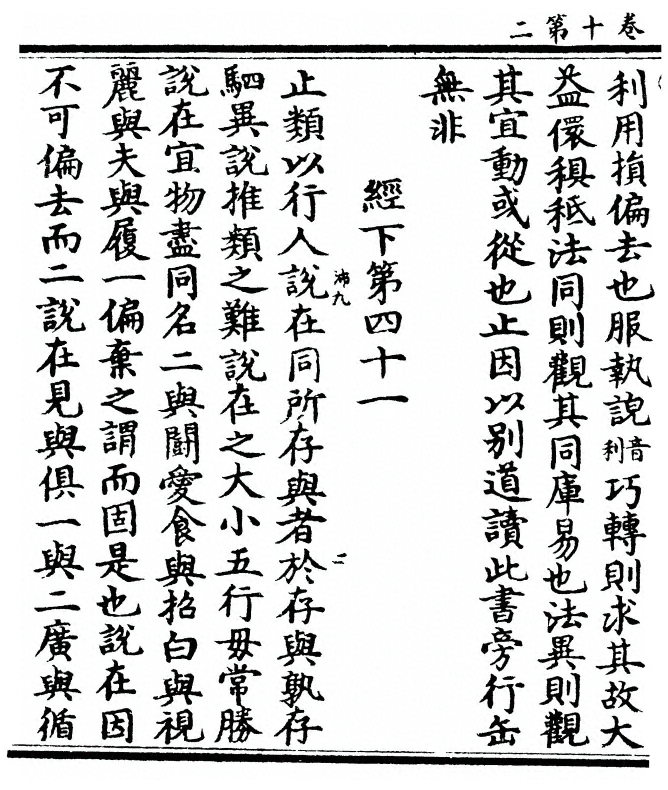 卷十第二
利用損偏去也服執說音利巧轉則求其故大
益儇稘秪法同則觀其同庫易也法異則觀
其宜動或從也止因以別道讀此書旁行缶
無非
經下第四十一
止類以行人說在同所存與者於存與孰存
駟異說推類之難說在之大小五行毋常勝
說在宜物盡同名二與鬬愛食與招白與視
麗與夫與履一偏棄之謂而固是也說在因
不可偏去而二說在見與俱一與二廣與循